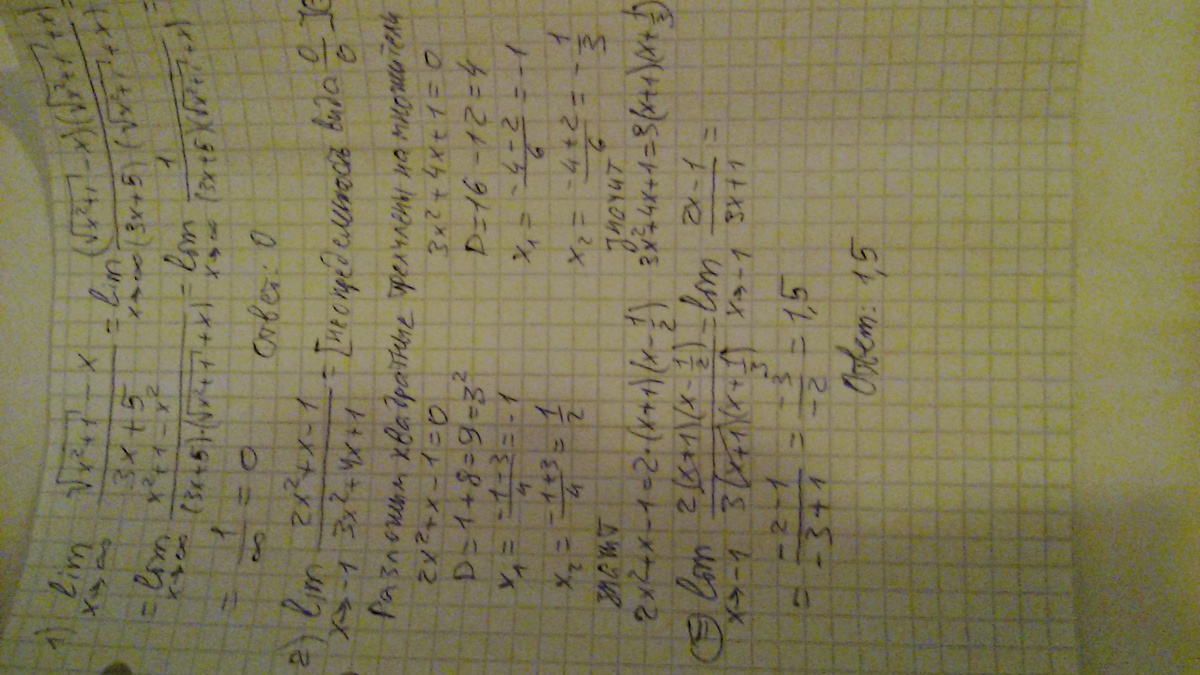 1) lim x→∞ (√(x²+1) - x)/(3x+5) = lim x→∞ ((√(x²+1) - x)(√(x²+1) + x))/((3x+5)(√(x²+1) + x)) =
= lim x→∞ (x²+1-x²)/((3x+5)·(√(x²+1) + x)) = lim x→∞ 1/((3x+5)(√(x²+1) + x)) =
= 1/∞ = 0 Ответ: 0
2) lim x→-1 (2x²+x-1)/(3x²+4x+1) = [неопределенность вида 0/0]
Разложим квадратные трехчлены на множители
2x²+x-1=0 3x²+4x+1=0
D=1+8=9=3² D=16-12=4
x₁ = (-1-3)/4 = -1 x₁ = (-4-2)/6 = -1
x₂ = (-1+3)/4 = 1/2 x₂ = (-4+2)/6 = -1/3
значит значит
2x²+x-1=2·(x+1)(x-1/2) 3x²+4x+1=3(x+1)(x+1/3)
(=) lim x→-1 (2(x+1)(x-1/2))/(3(x+1)(x+1/3)) = lim x→-1 (2x-1)/(3x+1) =
= (-2-1)/(-3+1) = (-3)/(-2) = 1,5
Ответ: 1,5